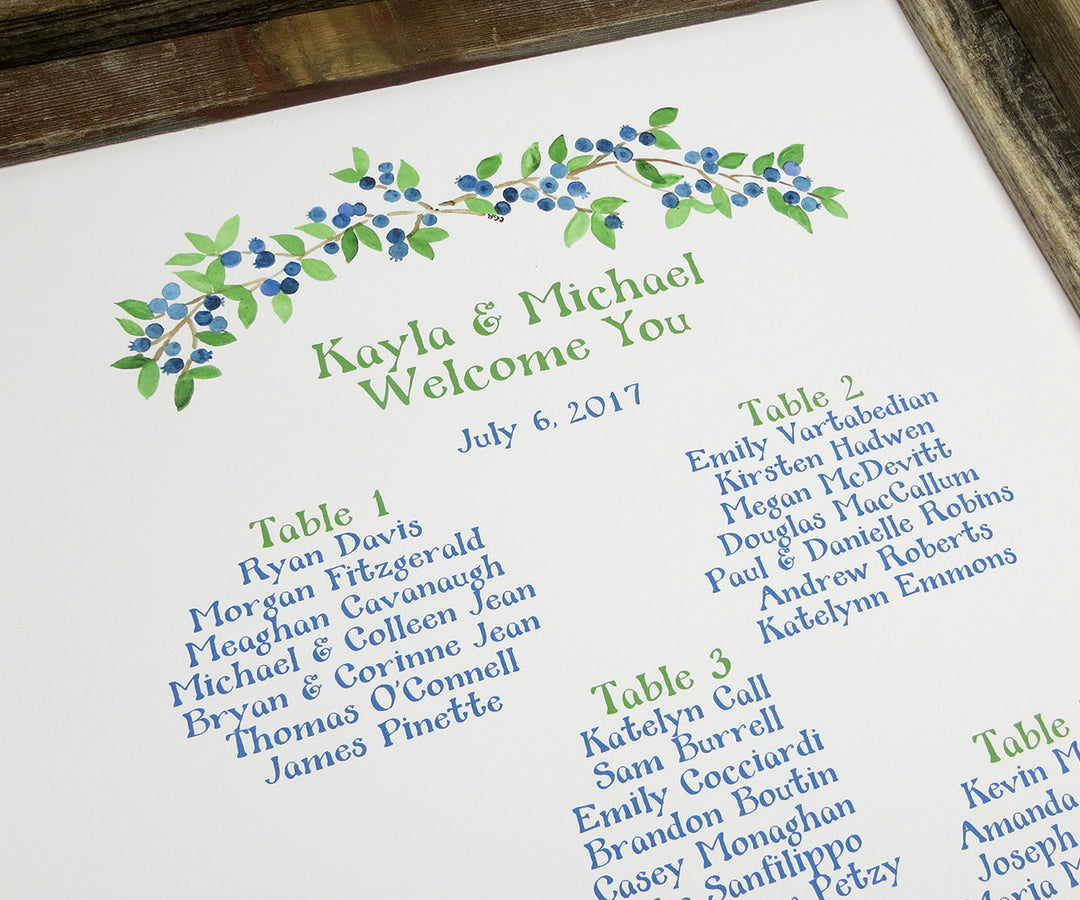 Kayla & Michael
Welcome You
July 6, 2017
Table 1
Ryan Davis
Morgan Fitzgerald
Meaghan Cavanaugh
Michael & Colleen Jean
Bryan & Corinne Jean
Thomas O'Connell
James Pinette
Table 2
Emily Vartabedian
Kirsten Hadwen
Megan McDevitt
Douglas MacCallum
Paul & Danielle Robins
Andrew Roberts
Katelynn Emmons
Table 3
Katelyn Call
Sam Burrell
Emily Cocciardi
Brandon Boutin
Casey Monaghan
Sanfilippo
Petzy
Table
Kevin
Amanda
Joseph